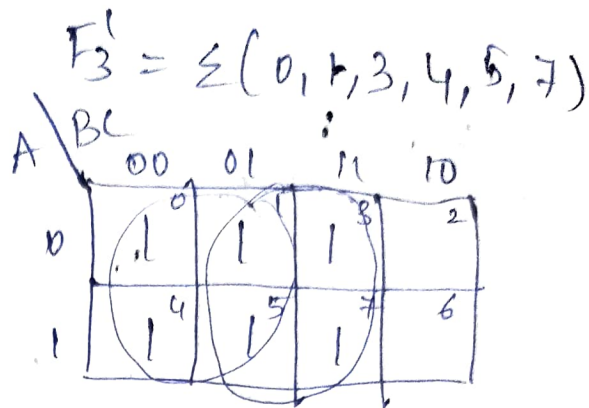 F₃' = Σ(0, 1, 3, 4, 5, 7)
A BC
00 01 11 10
0 1 0 1 1 1 3 2
1 1 4 1 5 1 7 6